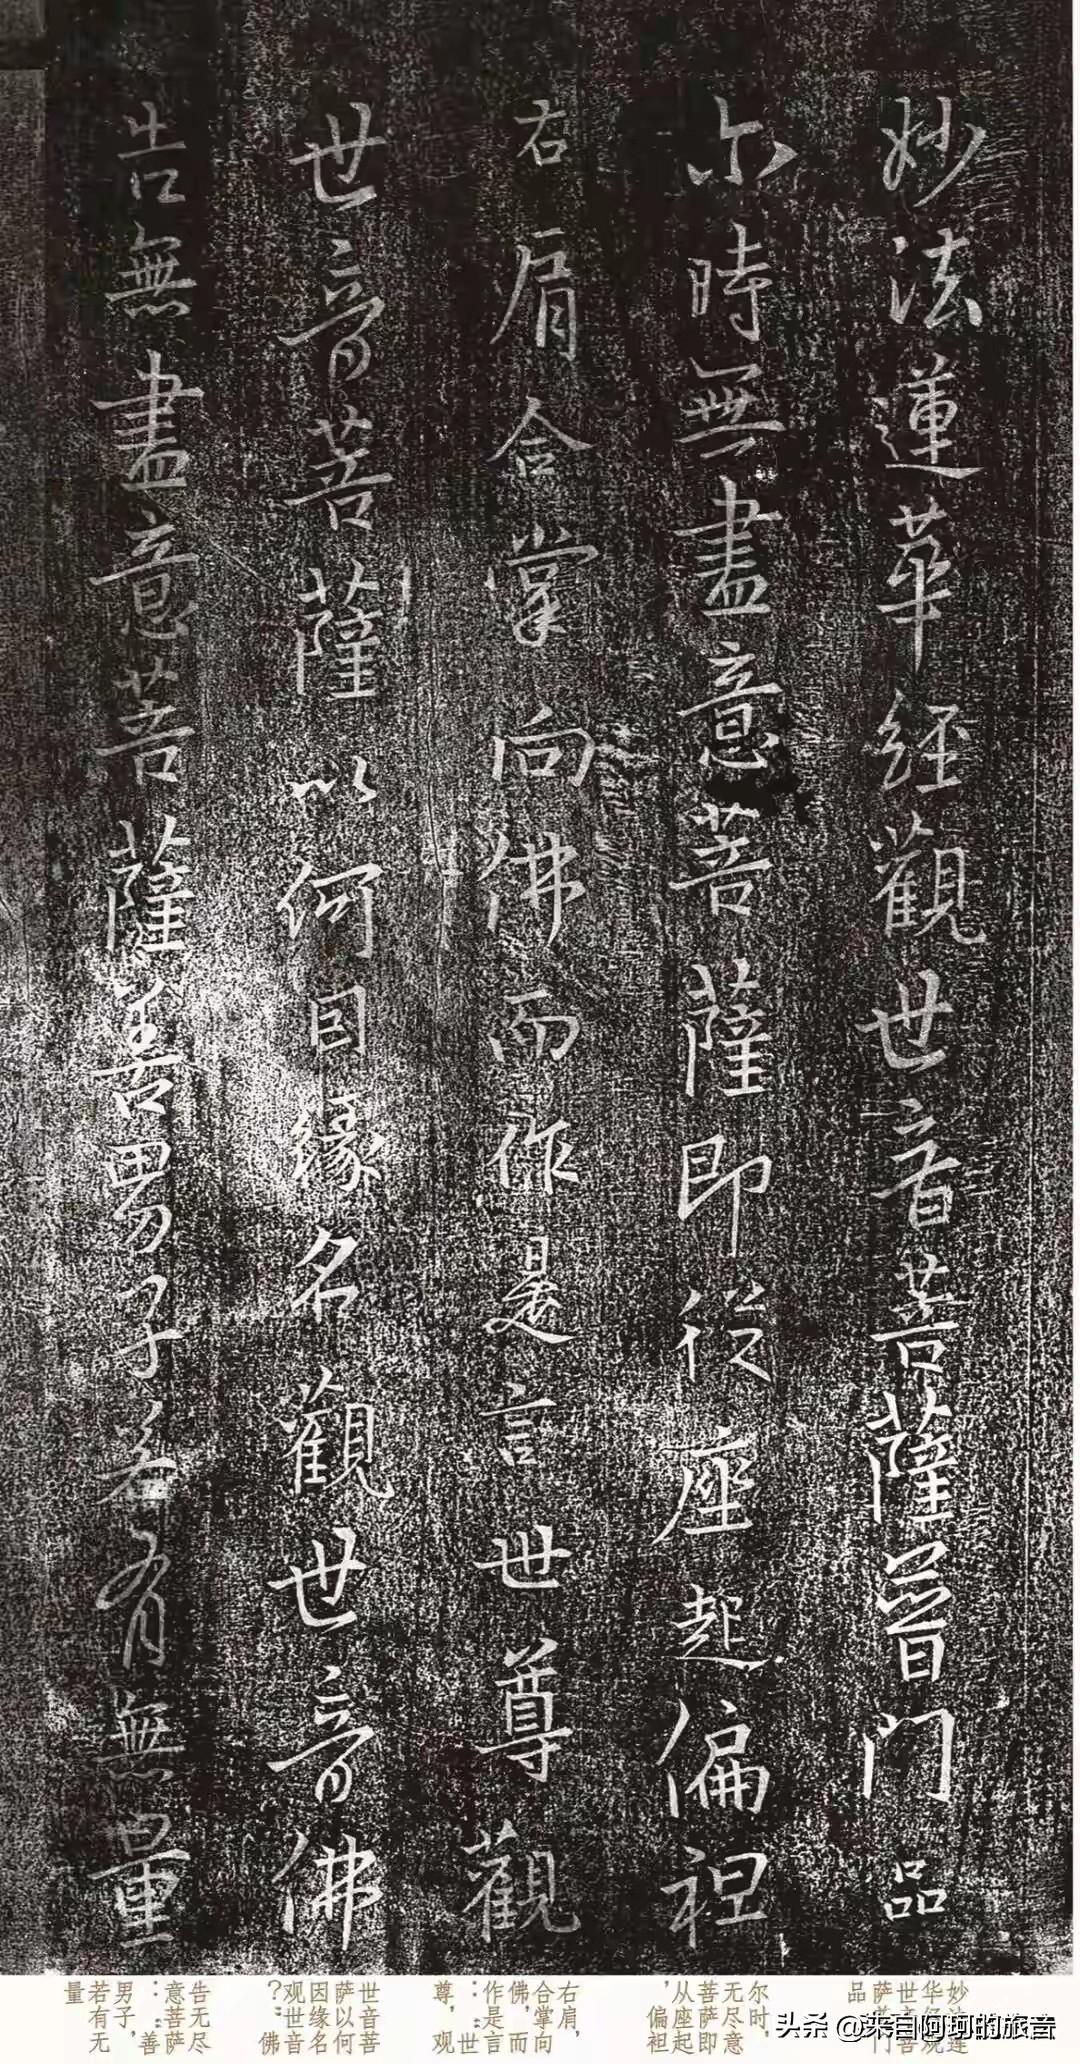 妙法蓮華経觀世音菩薩普門品
尒時無盡意菩薩即從座起偏袒
右肩合掌向佛而作是言世尊觀
世音菩薩以何因緣名觀世音佛
告無盡意菩薩善男子若有無量
妙法莲
华经观
世音菩
萨普门
品
尔时，
无尽意
菩萨即
从座起
，偏袒
右肩，
合掌向
佛，而
作是言
：“世
尊，观
世音菩
萨以何
因缘名
观世音
？”佛
告无尽
意菩萨
：“善
男子，
若有无
量
头条 @来自阿珂的旅音